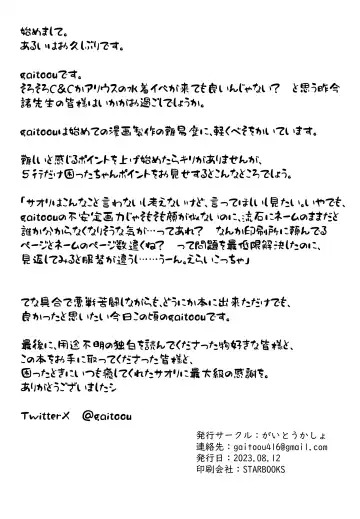 始めまして。
あるいはお久しぶりです。
gaitoouです。
そろそろC&Cかアリウスの水着イベが来ても良いんじゃない？　と思う昨今
諸先生の皆様はいかがお過ごしでしょうか。
gaitoouは始めての漫画製作の難易度に、軽くべそをかいています。
難しいと感じるポイントを上げ始めたらキリがありませんが、
5行だけ困ったちゃんポイントをお見せするとこんなところでしょう。
「サオリはこんなこと言わないし考えないけど、言ってほしいし見たい。いやでも、
gaitoouの不安定画力じゃそもそも顔が似ないのに、流石にネームのままだと
誰か分からなくなりそうな気が…ってあれ？　なんか印刷所に頼んでる
ページとネームのページ数違くね？　って問題を最低限解決したのに、
見返してみると服替が違うし……うーん。えらいこっちゃ」
てな具合で悪戦苦闘しながらも、どうにか本に出来ただけでも、
良かったと思いたい今日この頃のgaitoouです。
最後に、用途不明の独白を読んでくださった物好きな皆様と、
この本をお手に取ってくださった皆様と、
困ったときにいつも癒してくれたサオリに最大級の感謝を。
ありがとうございましたシ
TwitterX　@gaitoou
発行サークル：がいとうかしょ
連絡先：gaitoou416@gmail.com
発行日：2023.08.12
印刷会社：STARBOOKS